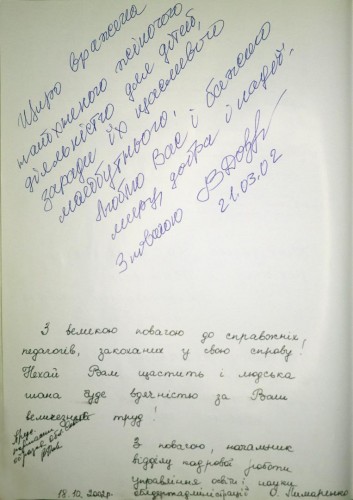 Щиро вражена
найтхненного жіночого
діяльністю для дітей,
заради їх щасливого
майбутнього,
Люблю Вас і бажаю
миру, добра і надії.
З повагою
21.03.02
З великою повагою до справжніх
педагогів, закоханих у свою справу!
Нехай Вам щастить і людська
шана буде вдячністю за Ваш
величезний труд!
З повагою, начальник
відділу кадрової роботи
управління освіти і науки
облдержадміністрації О. Лимаренко
18.10.2002р.